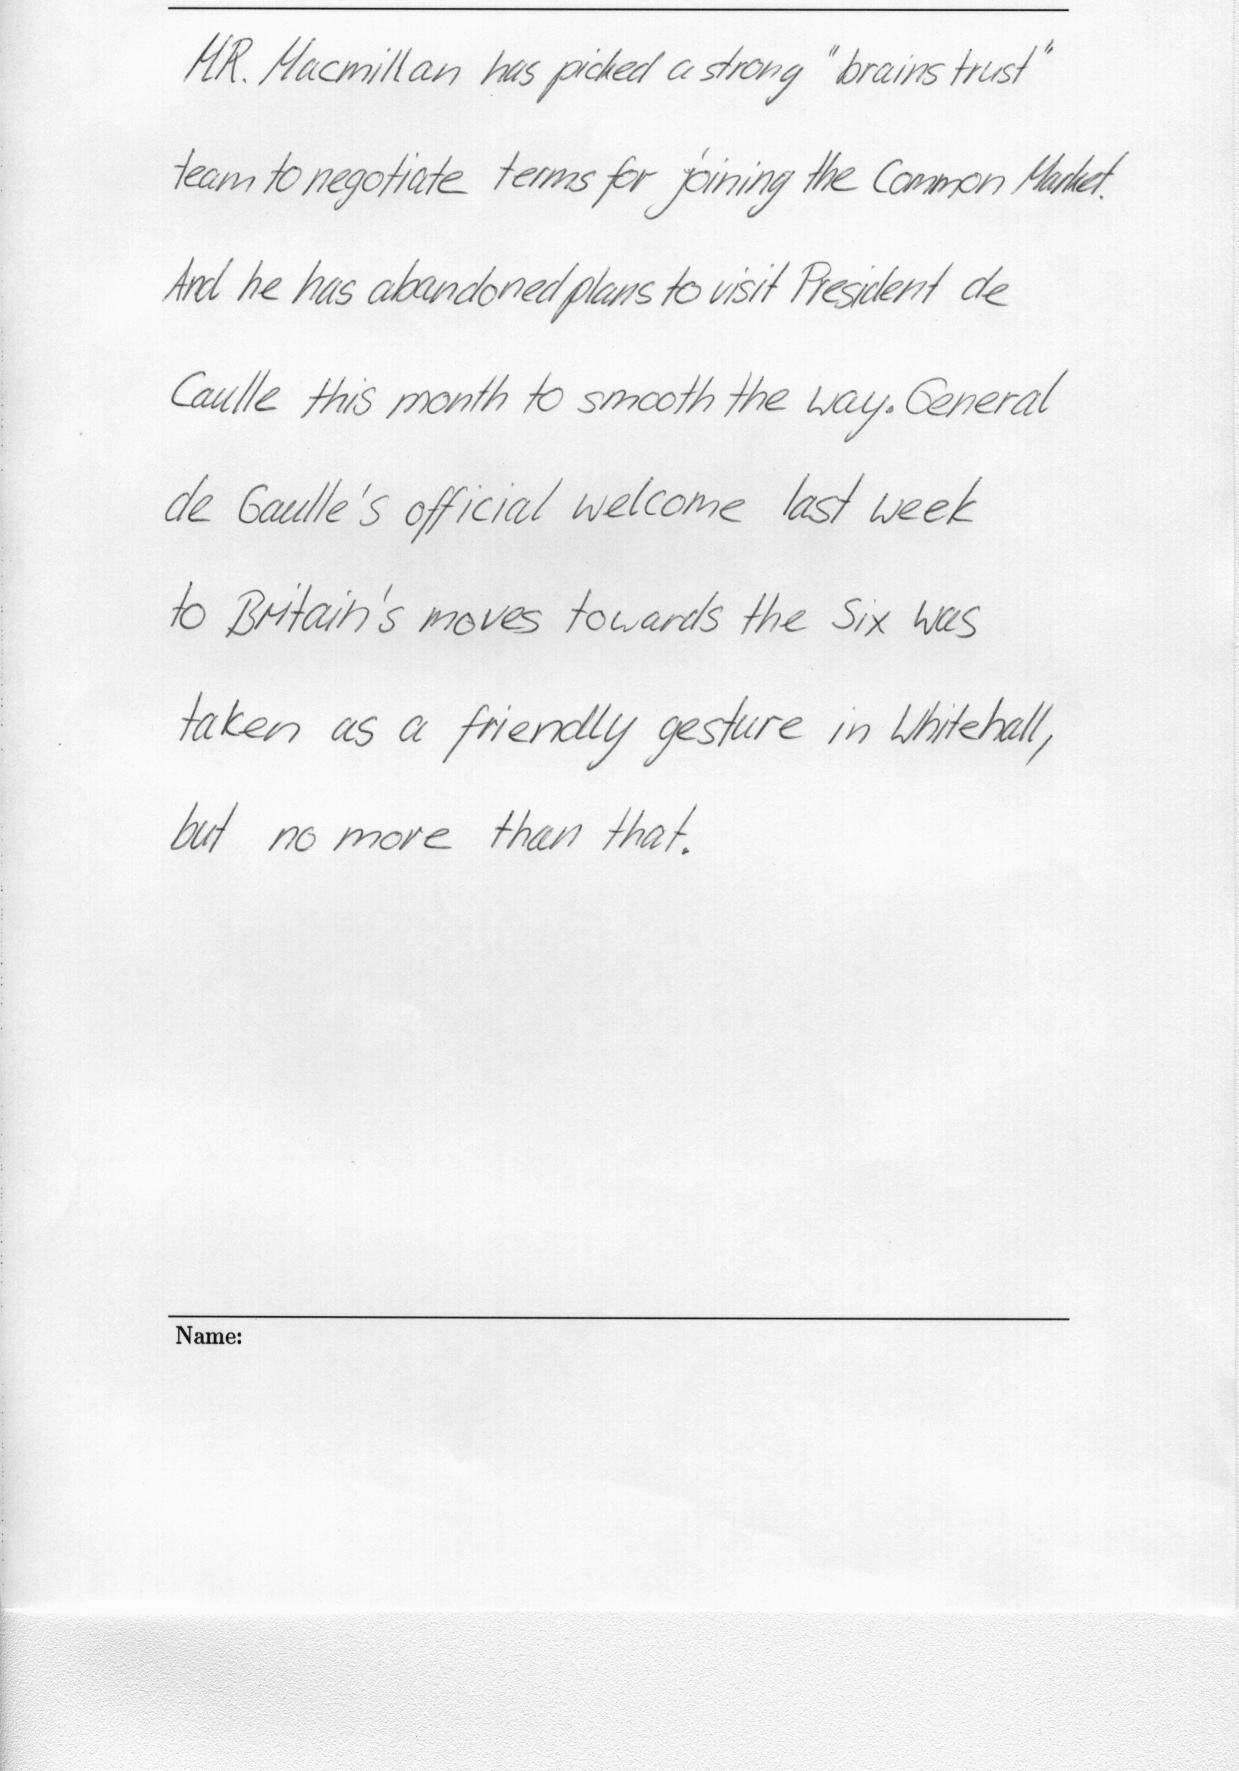 MR. Macmillan has picked a strong "brains trust"
team to negotiate terms for joining the Common Market.
And he has abandoned plans to visit President de
Caulle this month to smooth the way. General
de Gaulle's official welcome last week
to Britain's moves towards the Six was
taken as a friendly gesture in Whitehall,
but no more than that.
Name: